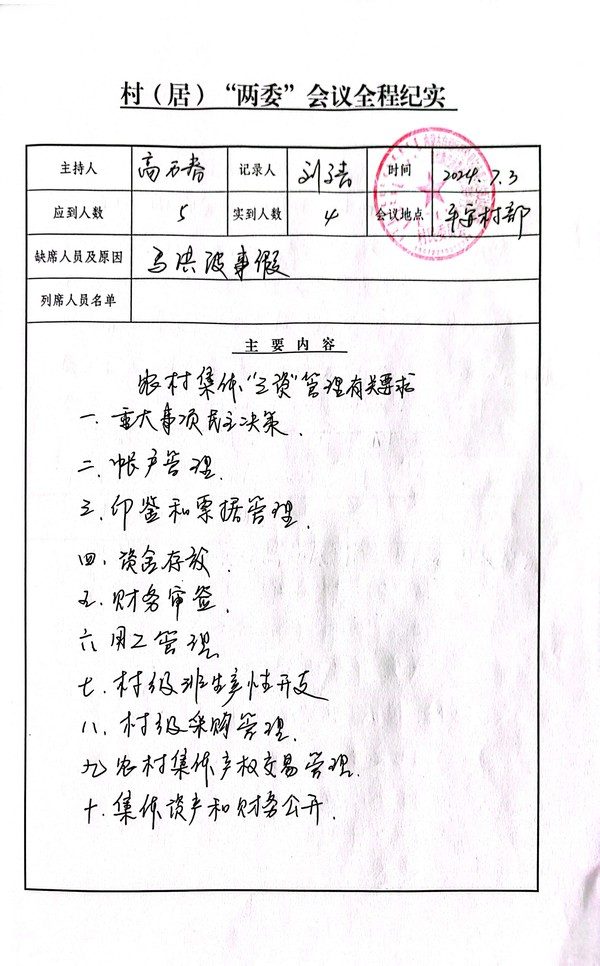 村（居）“两委”会议全程纪实
主持人 高 春 记录人 刘 时间 2024.7.3
应到人数 5 实到人数 4 会议地点 平安村部
缺席人员及原因 马洪波事假
列席人员名单
主要内容
农村集体“三资”管理有关要求
一、重大事项民主决策.
二、帐户管理.
三、印鉴和票据管理.
四、资金存放.
五、财务审签.
六 用工管理
七、村级非生产性开支
八、村级采购管理.
九 农村集体产权交易管理.
十、集体资产和财务公开.